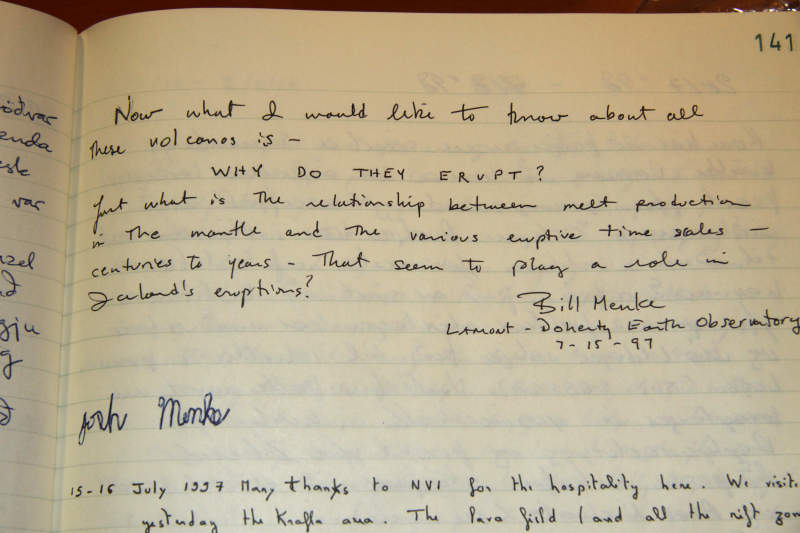 141
Now what I would like to know about all
these volcanos is –
WHY DO THEY ERUPT?
Just what is the relationship between melt production
in the mantle and the various eruptive time scales –
centuries to years – that seem to play a role in
Iceland's eruptions?
Bill Menke
LAMONT - Doherty Earth Observatory
7-15-97
Josh Menke
15-16 July 1997 Many thanks to NVI for the hospitality here. We visite
yesterday the Krafla area. The lava field (and all the rift zon
var